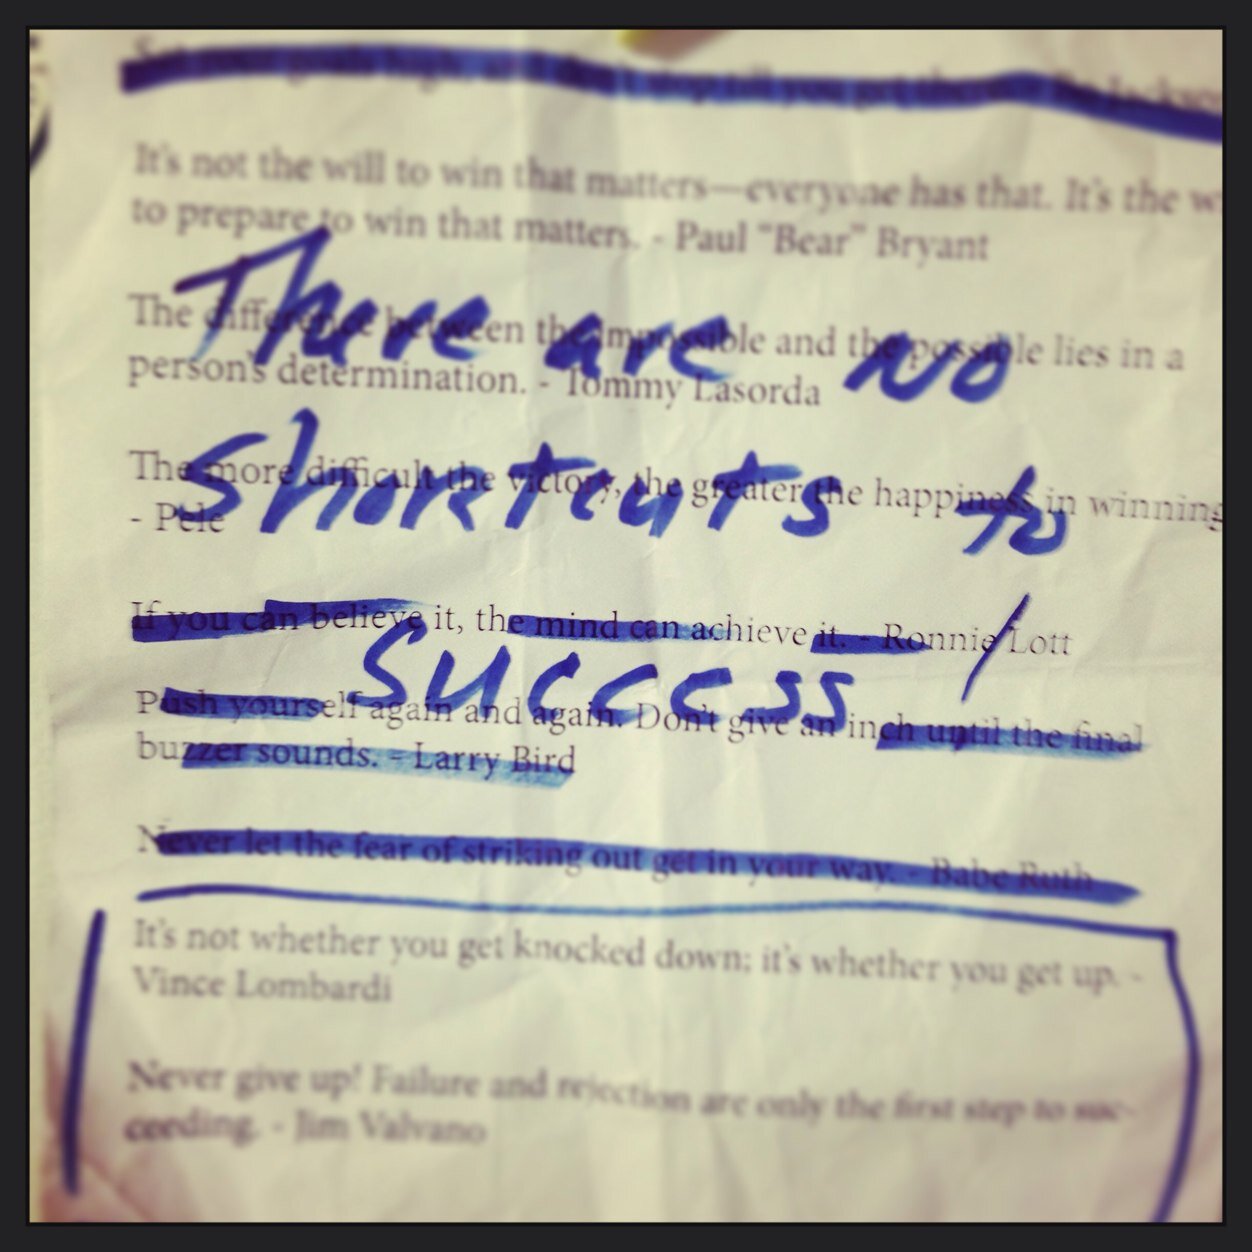 Set your goals high, and don't stop till you get there. - Bo Jackson
It's not the will to win that matters—everyone has that. It's the
to prepare to win that matters. - Paul "Bear" Bryant
There are no
The difference between the impossible and the possible lies in a
person's determination. - Tommy Lasorda
shortcuts to
The more difficult the victory, the greater the happiness in winning
- Pele
If you can believe it, the mind can achieve it. - Ronnie Lott
success!
Push yourself again and again. Don't give an inch until the final
buzzer sounds. - Larry Bird
Never let the fear of striking out get in your way. - Babe Ruth
It's not whether you get knocked down; it's whether you get up. -
Vince Lombardi
Never give up! Failure and rejection are only the first step to suc-
ceeding. - Jim Valvano